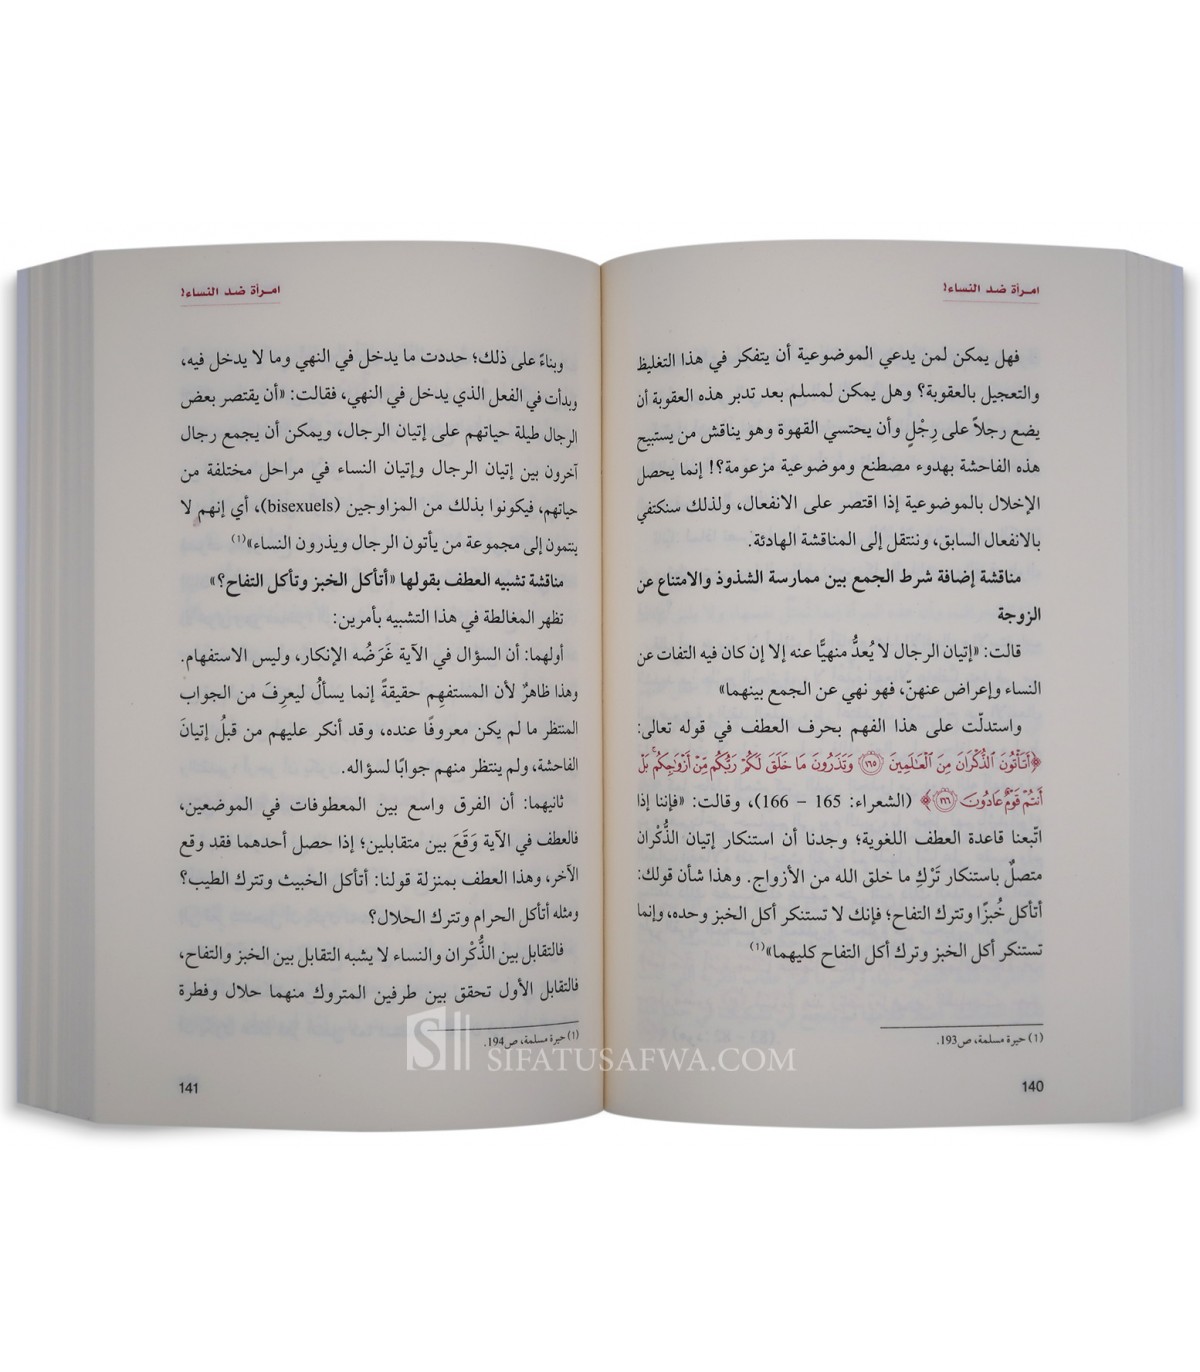 امرأة ضد النساء!
فهل يمكن لمن يدعي الموضوعية أن يتفكر في هذا التغليظ
والتعجيل بالعقوبة؟ وهل يمكن لمسلم بعد تدبر هذه العقوبة أن
يضع رجلاً على رِجْلٍ وأن يحتسي القهوة وهو يناقش من يستبيح
هذه الفاحشة بهدوء مصطنع وموضوعية مزعومة؟! إنما يحصل
الإخلال بالموضوعية إذا اقتصر على الانفعال، ولذلك سنكتفي
بالانفعال السابق، وننتقل إلى المناقشة الهادئة.
مناقشة إضافة شرط الجمع بين ممارسة الشذوذ والامتناع عن
الزوجة
قالت: «إتيان الرجال لا يُعدُّ منهيًّا عنه إلا إن كان فيه التفات عن
النساء وإعراض عنهنّ، فهو نهي عن الجمع بينهما»
واستدلّت على هذا الفهم بحرف العطف في قوله تعالى:
﴿أَتَأْتُونَ ٱلذُّكْرَانَ مِنَ ٱلْعَـٰلَمِينَ ١٦٥ وَتَذَرُونَ مَا خَلَقَ لَكُمْ رَبُّكُم مِّنْ أَزْوَٰجِكُم ۚ بَلْ
أَنتُمْ قَوْمٌ عَادُونَ ١٦٦﴾ (الشعراء: 165 – 166)، وقالت: «فإننا إذا
اتّبعنا قاعدة العطف اللغوية؛ وجدنا أن استنكار إتيان الذُّكْران
متصلٌ باستنكار تَرْكِ ما خلق الله من الأزواج. وهذا شأن قولك:
أتأكل خُبزًا وتترك التفاح؛ فإنك لا تستنكر أكل الخبز وحده، وإنما
تستنكر أكل الخبز وترك أكل التفاح كليهما»(1)
(1) حيرة مسلمة، ص193.
140
امرأة ضد النساء!
وبناءً على ذلك؛ حددت ما يدخل في النهي وما لا يدخل فيه،
وبدأت في الفعل الذي يدخل في النهي، فقالت: «أن يقتصر بعض
الرجال طيلة حياتهم على إتيان الرجال، ويمكن أن يجمع رجال
آخرون بين إتيان الرجال وإتيان النساء في مراحل مختلفة من
حياتهم، فيكونوا بذلك من المزاوجين (bisexuels)، أي إنهم لا
ينتمون إلى مجموعة من يأتون الرجال ويذرون النساء»(1)
مناقشة تشبيه العطف بقولها «أتأكل الخبز وتأكل التفاح؟»
تظهر المغالطة في هذا التشبيه بأمرين:
أولهما: أن السؤال في الآية غَرَضُه الإنكار، وليس الاستفهام.
وهذا ظاهرٌ لأن المستفهِم حقيقةً إنما يسألُ ليعرِفَ من الجواب
المنتظر ما لم يكن معروفًا عنده، وقد أنكر عليهم من قبلُ إتيانَ
الفاحشة، ولم ينتظر منهم جوابًا لسؤاله.
ثانيهما: أن الفرق واسع بين المعطوفات في الموضعين،
فالعطف في الآية وَقَعَ بين متقابلين؛ إذا حصل أحدهما فقد وقع
الآخر، وهذا العطف بمنزلة قولنا: أتأكل الخبيث وتترك الطيب؟
ومثله أتأكل الحرام وتترك الحلال؟
فالتقابل بين الذُّكْران والنساء لا يشبه التقابل بين الخبز والتفاح،
فالتقابل الأول تحقق بين طرفين المتروك منهما حلال وفطرة
(1) حيرة مسلمة، ص194.
141
SIFATUSAFWA.COM